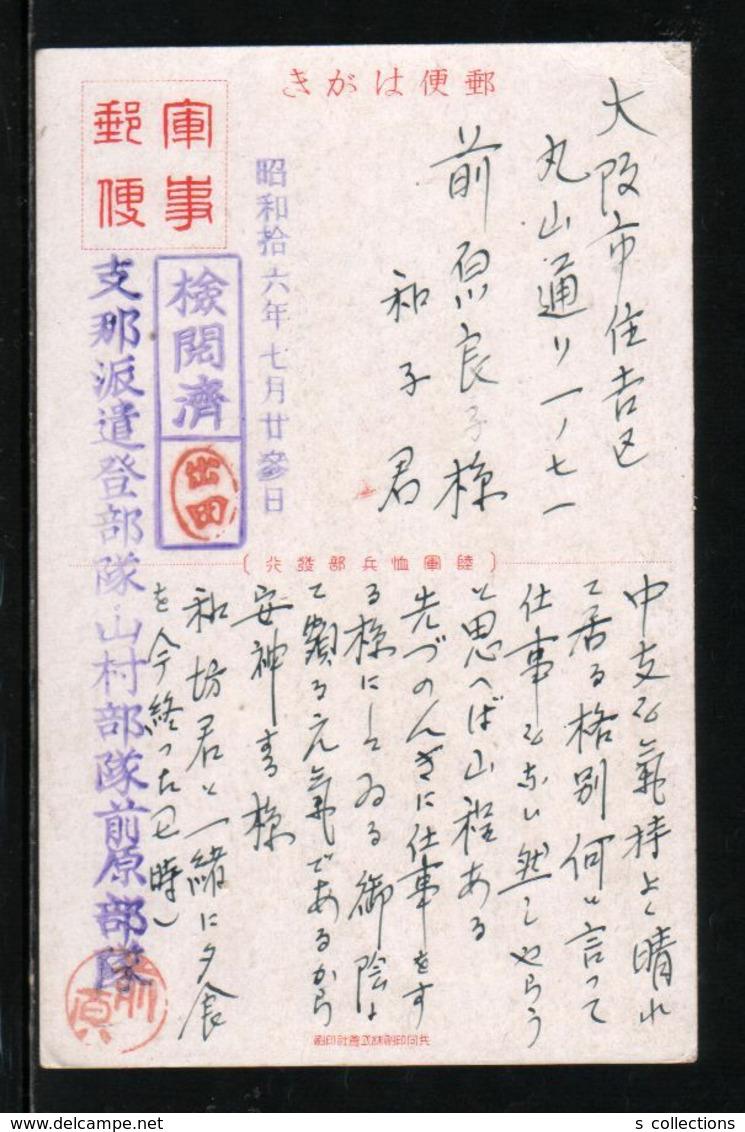 郵便はがき
軍事
郵便
大阪市住吉区
丸山通リ一ノ七一
前原良子様
和子君
昭和拾六年七月廿参日
検閲済
出田
支那派遣登部隊・山村部隊前原部隊
前原
(陸軍恤兵部發行)
中支も氣持よく晴れ
て居る格別何と言って
仕事もない然しやらう
と思へば山程ある
先づのんきに仕事をす
る様にしてゐる御陰よ
て頗る元氣であるから
安神すき様
和坊君と一緒に夕食
を今終った(七時)
共同印刷株式會社印刷
s collections